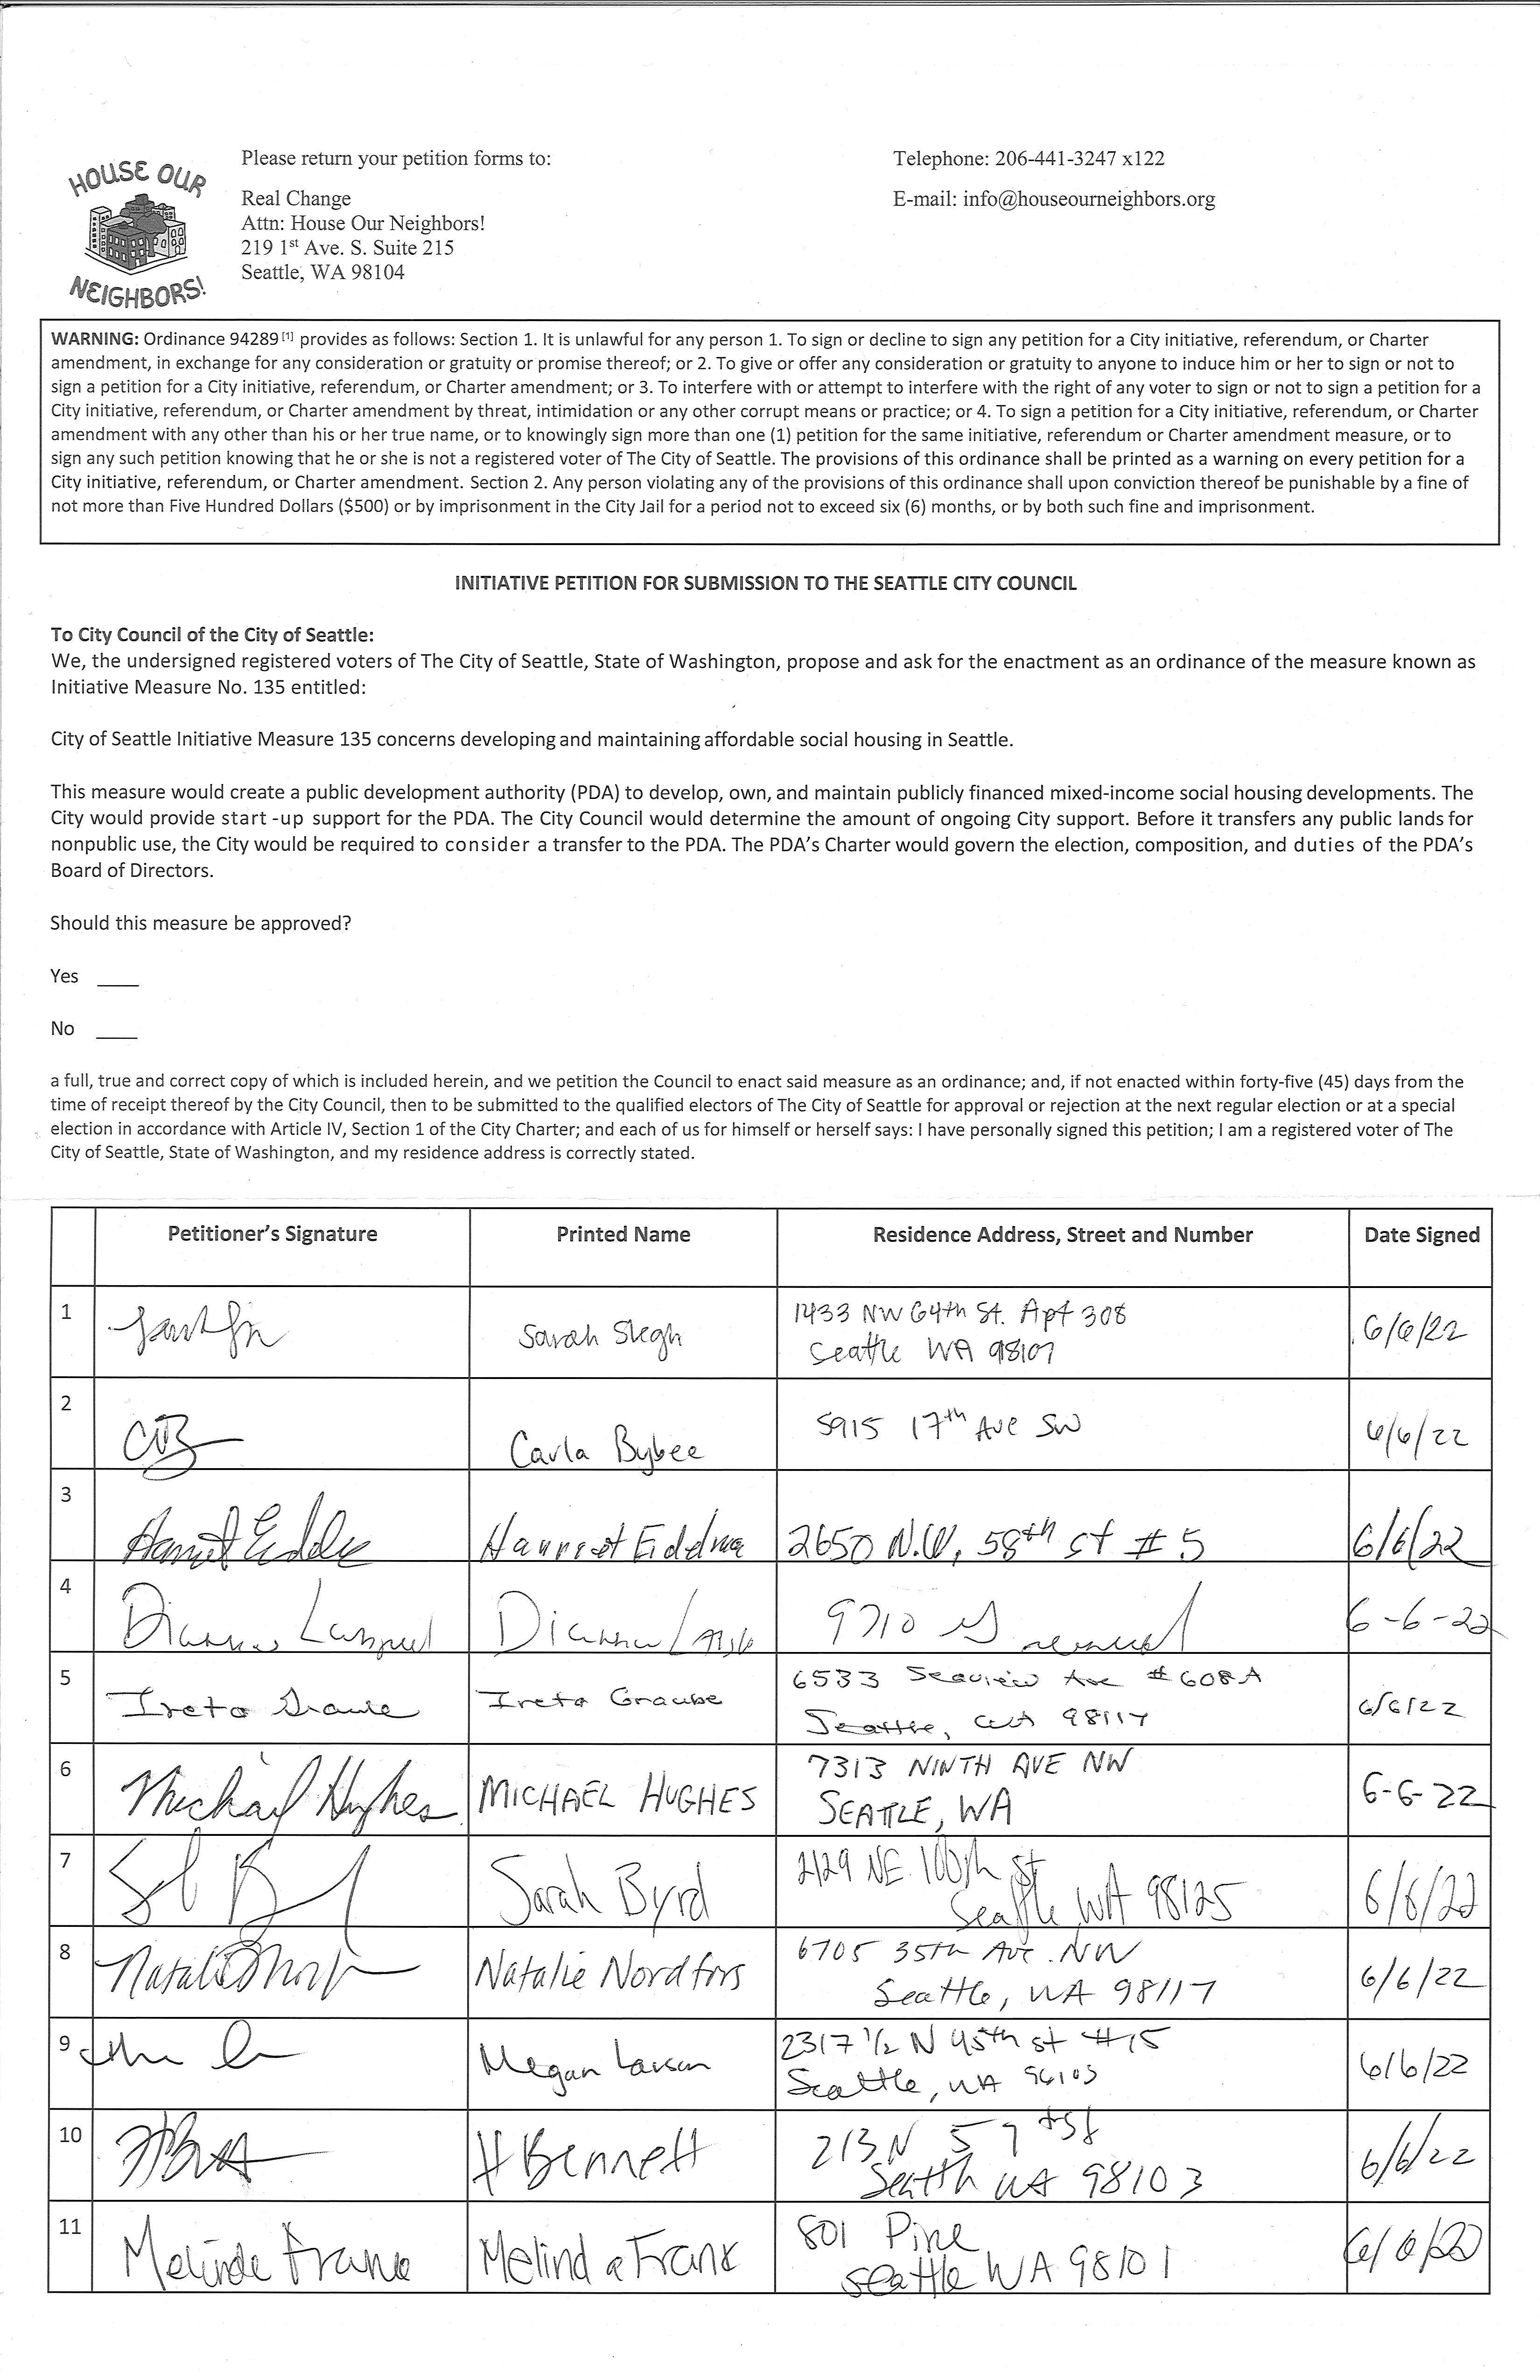 HOUSE OUR
NEIGHBORS!
Please return your petition forms to:
Real Change
Attn: House Our Neighbors!
219 1st Ave. S. Suite 215
Seattle, WA 98104
Telephone: 206-441-3247 x122
E-mail: info@houseourneighbors.org
WARNING: Ordinance 94289 [1] provides as follows: Section 1. It is unlawful for any person 1. To sign or decline to sign any petition for a City initiative, referendum, or Charter
amendment, in exchange for any consideration or gratuity or promise thereof; or 2. To give or offer any consideration or gratuity to anyone to induce him or her to sign or not to
sign a petition for a City initiative, referendum, or Charter amendment; or 3. To interfere with or attempt to interfere with the right of any voter to sign or not to sign a petition for a
City initiative, referendum, or Charter amendment by threat, intimidation or any other corrupt means or practice; or 4. To sign a petition for a City initiative, referendum, or Charter
amendment with any other than his or her true name, or to knowingly sign more than one (1) petition for the same initiative, referendum or Charter amendment measure, or to
sign any such petition knowing that he or she is not a registered voter of The City of Seattle. The provisions of this ordinance shall be printed as a warning on every petition for a
City initiative, referendum, or Charter amendment. Section 2. Any person violating any of the provisions of this ordinance shall upon conviction thereof be punishable by a fine of
not more than Five Hundred Dollars ($500) or by imprisonment in the City Jail for a period not to exceed six (6) months, or by both such fine and imprisonment.
INITIATIVE PETITION FOR SUBMISSION TO THE SEATTLE CITY COUNCIL
To City Council of the City of Seattle:
We, the undersigned registered voters of The City of Seattle, State of Washington, propose and ask for the enactment as an ordinance of the measure known as
Initiative Measure No. 135 entitled:
City of Seattle Initiative Measure 135 concerns developing and maintaining affordable social housing in Seattle.
This measure would create a public development authority (PDA) to develop, own, and maintain publicly financed mixed-income social housing developments. The
City would provide start -up support for the PDA. The City Council would determine the amount of ongoing City support. Before it transfers any public lands for
nonpublic use, the City would be required to consider a transfer to the PDA. The PDA's Charter would govern the election, composition, and duties of the PDA's
Board of Directors.
Should this measure be approved?
Yes ____
No ____
a full, true and correct copy of which is included herein, and we petition the Council to enact said measure as an ordinance; and, if not enacted within forty-five (45) days from the
time of receipt thereof by the City Council, then to be submitted to the qualified electors of The City of Seattle for approval or rejection at the next regular election or at a special
election in accordance with Article IV, Section 1 of the City Charter; and each of us for himself or herself says: I have personally signed this petition; I am a registered voter of The
City of Seattle, State of Washington, and my residence address is correctly stated.
Petitioner's Signature Printed Name Residence Address, Street and Number Date Signed
1 Sarah Slegh 1433 NW 64th St. Apt 308 6/6/22
Seattle WA 98107
2 Carla Bybee 5915 17th Ave SW 6/6/22
3 Harriet 2650 N.W. 58th St # 5 6/6/22
4 Dianna 9710 6-6-22
5 Ireta Graube Ireta Graube 6533 Seaview Ave # 608A 6/6/22
Seattle, WA 98117
6 Michael Hughes MICHAEL HUGHES 7313 NINTH AVE NW 6-6-22
SEATTLE, WA
7 Sarah Byrd 2129 NE 100th St 6/6/22
Seattle WA 98125
8 Natalie Nordfors 6705 35th Ave. NW 6/6/22
Seattle, WA 98117
9 Megan Larson 2317 1/2 N 45th St #15 6/6/22
Seattle, WA 98103
10 H Bennett 213 N 57 6/6/22
Seattle WA 98103
11 Melinda Frank Melinda Frank 801 Pine
Seattle WA 98101